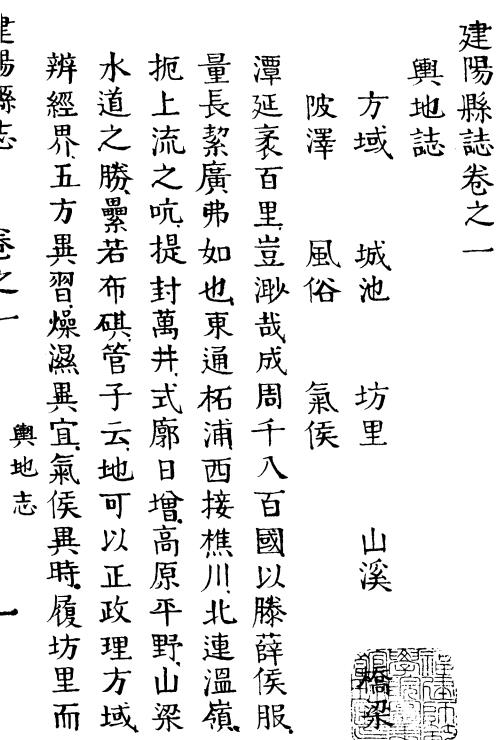 建陽縣誌卷之一
輿地誌
方域 城池 坊里 山溪 橋梁
陂澤 風俗 氣侯
潭延袤百里豈渺哉成周千八百國以滕薛侯服
量長絜廣弗如也東通柘浦西接樵川北連溫嶺
扼上流之吭提封萬井式廓日增高原平野山梁
水道之勝纍若布碁管子云地可以正政理方域
辨經界五方異習燥濕異宜氣侯異時履坊里而
建陽縣志 卷之一 輿地志 一